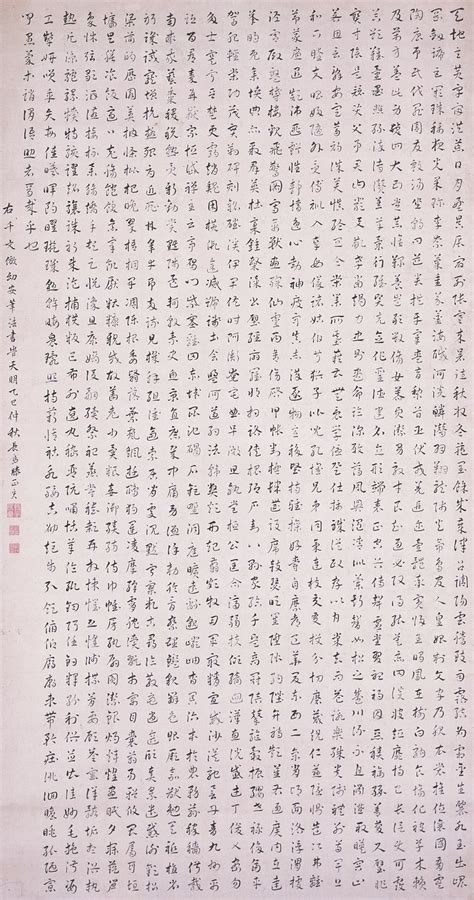 天地玄黄宇宙洪荒日月盈昃辰宿列張寒来暑往秋収冬蔵閏餘成歳律呂調陽雲騰致雨露結為霜金生麗水玉出崑
岡剣號巨闕珠稱夜光果珍李柰菜重芥薑海鹹河淡鱗潜羽翔龍師火帝鳥官人皇始制文字乃服衣裳推位讓國有虞
陶唐弔民伐罪周發殷湯坐朝問道垂拱平章愛育黎首臣伏戎羌遐邇壹體率賓歸王鳴鳳在樹白駒食場化被草木賴
及萬方蓋此身髪四大五常恭惟鞠養豈敢毀傷女慕貞潔男效才良知過必改得能莫忘罔談彼短靡恃己長信使可覆
器欲難量墨悲絲染詩讃羔羊景行維賢剋念作聖徳建名立形端表正空谷傳聲虚堂習聽禍因悪積福縁善慶尺璧非
寶寸陰是競資父事君曰嚴與敬孝當竭力忠則盡命臨深履薄夙興温凊似蘭斯馨如松之盛川流不息淵澄取映容止
若思言辭安定篤初誠美慎終宜令榮業所基籍甚無竟學優登仕攝職從政存以甘棠去而益詠樂殊貴賤禮別尊卑上
和下睦夫唱婦隨外受傅訓入奉母儀諸姑伯叔猶子比兒孔懐兄弟同氣連枝交友投分切磨箴規仁慈隠惻造次弗離
節義廉退顛沛匪虧性静情逸心動神疲守真志滿逐物意移堅持雅操好爵自縻都邑華夏東西二京背邙面洛浮渭據
涇宮殿盤鬱樓觀飛驚圖寫禽獸畫綵仙靈丙舎傍啓甲帳對楹肆筵設席鼓瑟吹笙升階納陛弁轉疑星右通廣内左達
承明既集墳典亦聚群英杜稾鍾隷漆書壁經府羅將相路侠槐卿戸封八縣家給千兵高冠陪輦驅轂振纓世祿侈富車
駕肥輕策功茂實勒碑刻銘磻溪伊尹佐時阿衡奄宅曲阜微旦孰營桓公匡合濟弱扶傾綺迴漢惠説感武丁俊乂密勿
多士寔寧晉楚更霸趙魏困横假途滅虢踐土會盟何遵約法韓弊煩刑起翦頗牧用軍最精宣威沙漠馳譽丹青九州禹
跡百郡秦并嶽宗恒岱禪主云亭雁門紫塞鷄田赤城昆池碣石鉅野洞庭曠遠緜邈巖岫杳冥治本於農務茲稼穡俶載
南畝我藝黍稷税熟貢新勸賞黜陟孟軻敦素史魚秉直庶幾中庸勞謙謹勅聆音察理鑑貌辨色貽厥嘉猷勉其祗植省
躬譏誡寵増抗極殆辱近恥林皋幸即兩疏見機解組誰逼索居閑處沈默寂寥求古尋論散慮逍遥欣奏累遣慼謝歡招
渠荷的歴園莽抽條枇杷晩翠梧桐早凋陳根委翳落葉飄颻遊鵾獨運凌摩絳霄耽讀翫市寓目囊箱易輶攸畏屬耳垣
牆具膳飡飯適口充腸飽飫烹宰飢厭糟糠親戚故舊老少異糧妾御績紡侍巾帷房紈扇圓潔銀燭煒煌晝眠夕寐藍筍
象床絃歌酒讌接杯舉觴矯手頓足悦豫且康嫡後嗣續祭祀蒸嘗稽顙再拜悚懼恐惶牋牒簡要顧答審詳骸垢想浴執
熱願涼驢騾犢特駭躍超驤誅斬賊盗捕獲叛亡布射遼丸嵇琴阮嘯恬筆倫紙鈞巧任釣釋紛利俗並皆佳妙毛施淑姿
工顰妍笑年矢毎催羲暉朗曜璇璣懸斡晦魄環照指薪修祜永綏吉劭矩歩引領俯仰廊廟束帶矜莊徘徊瞻眺孤陋寡
聞愚蒙等誚謂語助者焉哉乎也
右千文倣幼安筆法書天明乙巳仲秋